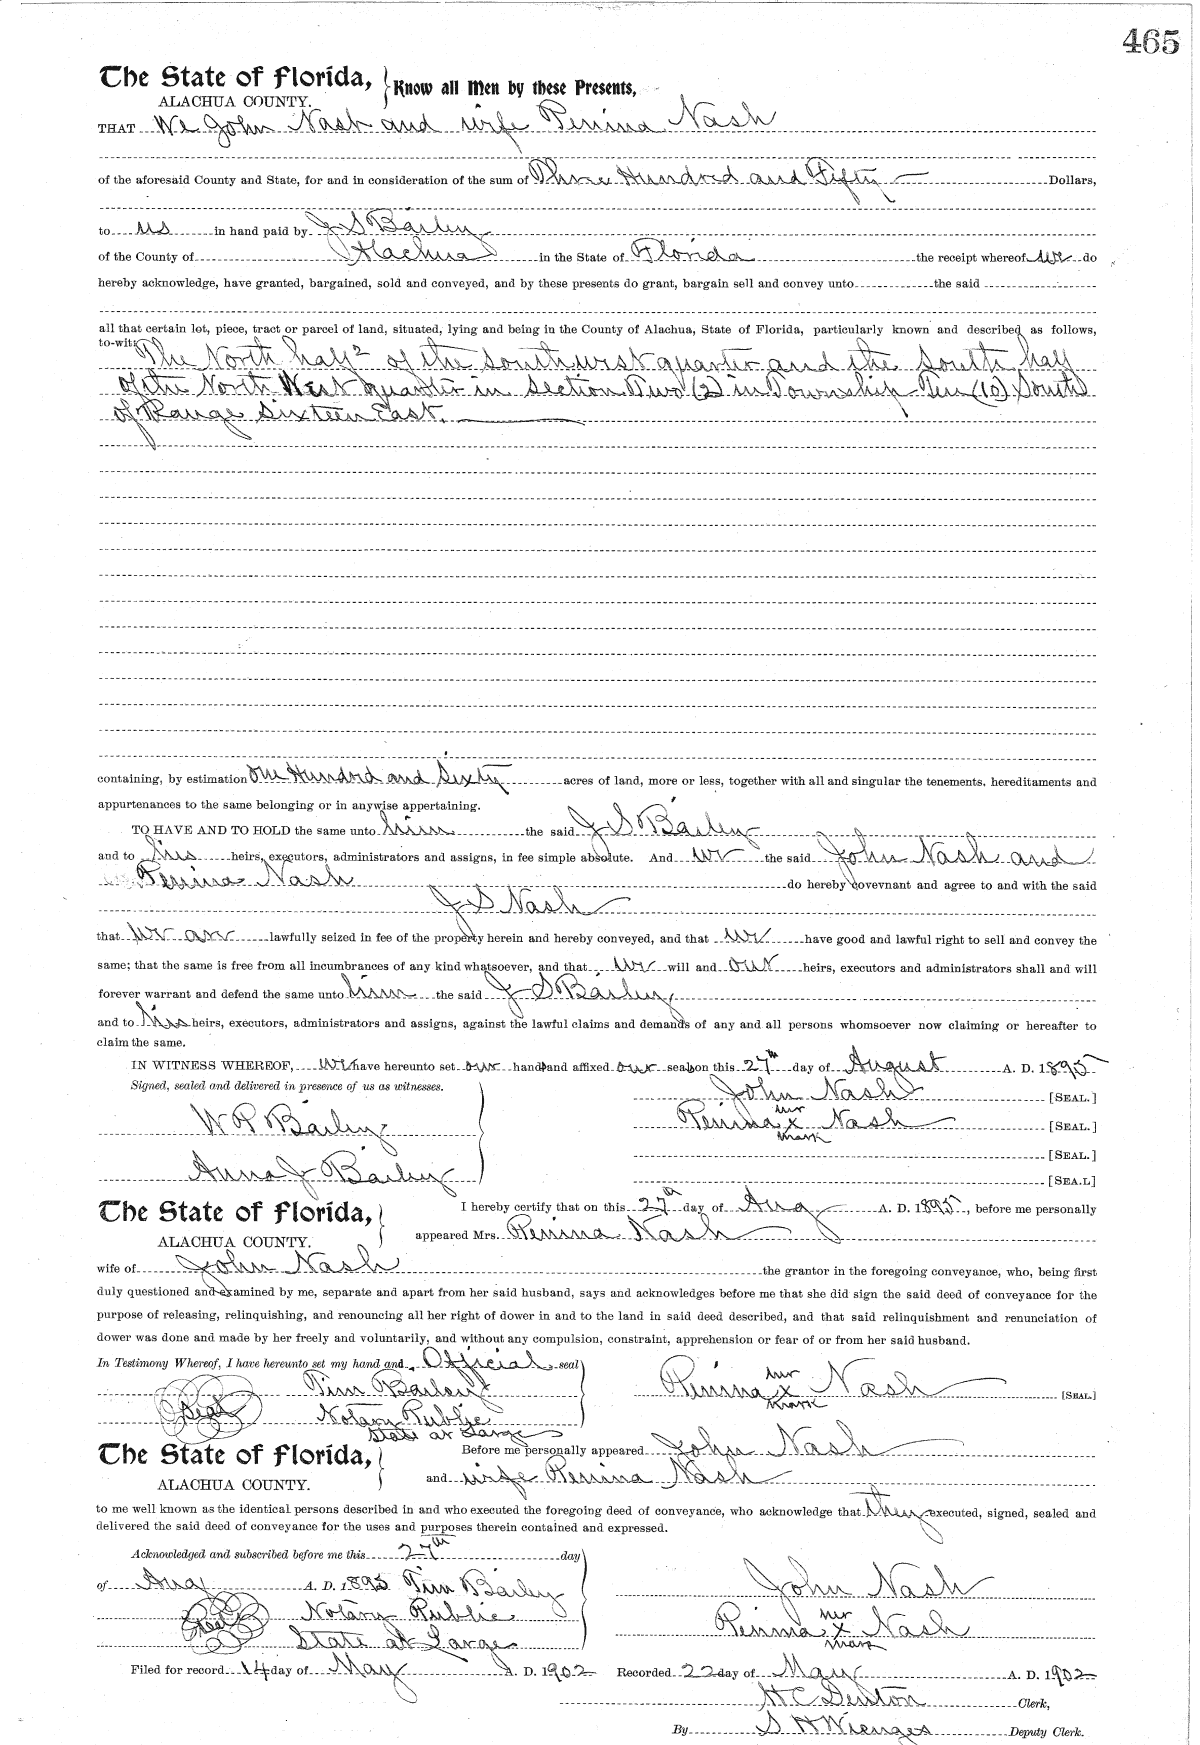 465
The State of Florida, } Know all Men by these Presents,
ALACHUA COUNTY.
THAT We John Nash and wife Penina Nash
of the aforesaid County and State, for and in consideration of the sum of Three Hundred and Fifty Dollars,
to us in hand paid by J S Bailey
of the County of Alachua in the State of Florida the receipt whereof we do
hereby acknowledge, have granted, bargained, sold and conveyed, and by these presents do grant, bargain sell and convey unto the said
all that certain lot, piece, tract or parcel of land, situated, lying and being in the County of Alachua, State of Florida, particularly known and described as follows,
to-wit: The North half of the southwest quarter and the South half
of the North West quarter in Section Two (2) in Township Ten (10) South
of Range Sixteen East.
containing, by estimation One Hundred and Sixty acres of land, more or less, together with all and singular the tenements. hereditaments and
appurtenances to the same belonging or in anywise appertaining.
TO HAVE AND TO HOLD the same unto him the said J S Bailey
and to his heirs, executors, administrators and assigns, in fee simple absolute. And we the said John Nash and
Penina Nash do hereby covevnant and agree to and with the said
J S Nash
that we are lawfully seized in fee of the property herein and hereby conveyed, and that we have good and lawful right to sell and convey the
same; that the same is free from all incumbrances of any kind whatsoever, and that we will and our heirs, executors and administrators shall and will
forever warrant and defend the same unto him the said J S Bailey
and to his heirs, executors, administrators and assigns, against the lawful claims and demands of any and all persons whomsoever now claiming or hereafter to
claim the same.
IN WITNESS WHEREOF, we have hereunto set our hands and affixed our seals on this 27th day of August A. D. 1895
Signed, sealed and delivered in presence of us as witnesses. John Nash [SEAL.]
W P Bailey Penina her x mark Nash [SEAL.]
[SEAL.]
Anna J Bailey [SEA.L]
The State of Florida, } I hereby certify that on this 27th day of Aug A. D. 1895, before me personally
ALACHUA COUNTY. appeared Mrs. Penina Nash
wife of John Nash the grantor in the foregoing conveyance, who, being first
duly questioned and examined by me, separate and apart from her said husband, says and acknowledges before me that she did sign the said deed of conveyance for the
purpose of releasing, relinquishing, and renouncing all her right of dower in and to the land in said deed described, and that said relinquishment and renunciation of
dower was done and made by her freely and voluntarily, and without any compulsion, constraint, apprehension or fear of or from her said husband.
In Testimony Whereof, I have hereunto set my hand and Official seal
Tim Bailey Penina her x mark Nash [SEAL.]
Seal Notary Public
State at Large
The State of Florida, } Before me personally appeared John Nash
ALACHUA COUNTY. and wife Penina Nash
to me well known as the identical persons described in and who executed the foregoing deed of conveyance, who acknowledge that they executed, signed, sealed and
delivered the said deed of conveyance for the uses and purposes therein contained and expressed.
Acknowledged and subscribed before me this 27th day
of Aug A. D. 1895 Tim Bailey John Nash
Seal Notary Public Penina her x mark Nash
State at Large
Filed for record 14 day of May A. D. 1902 Recorded 22 day of May A. D. 1902
H C Denton Clerk,
By S H Wienges Deputy Clerk.